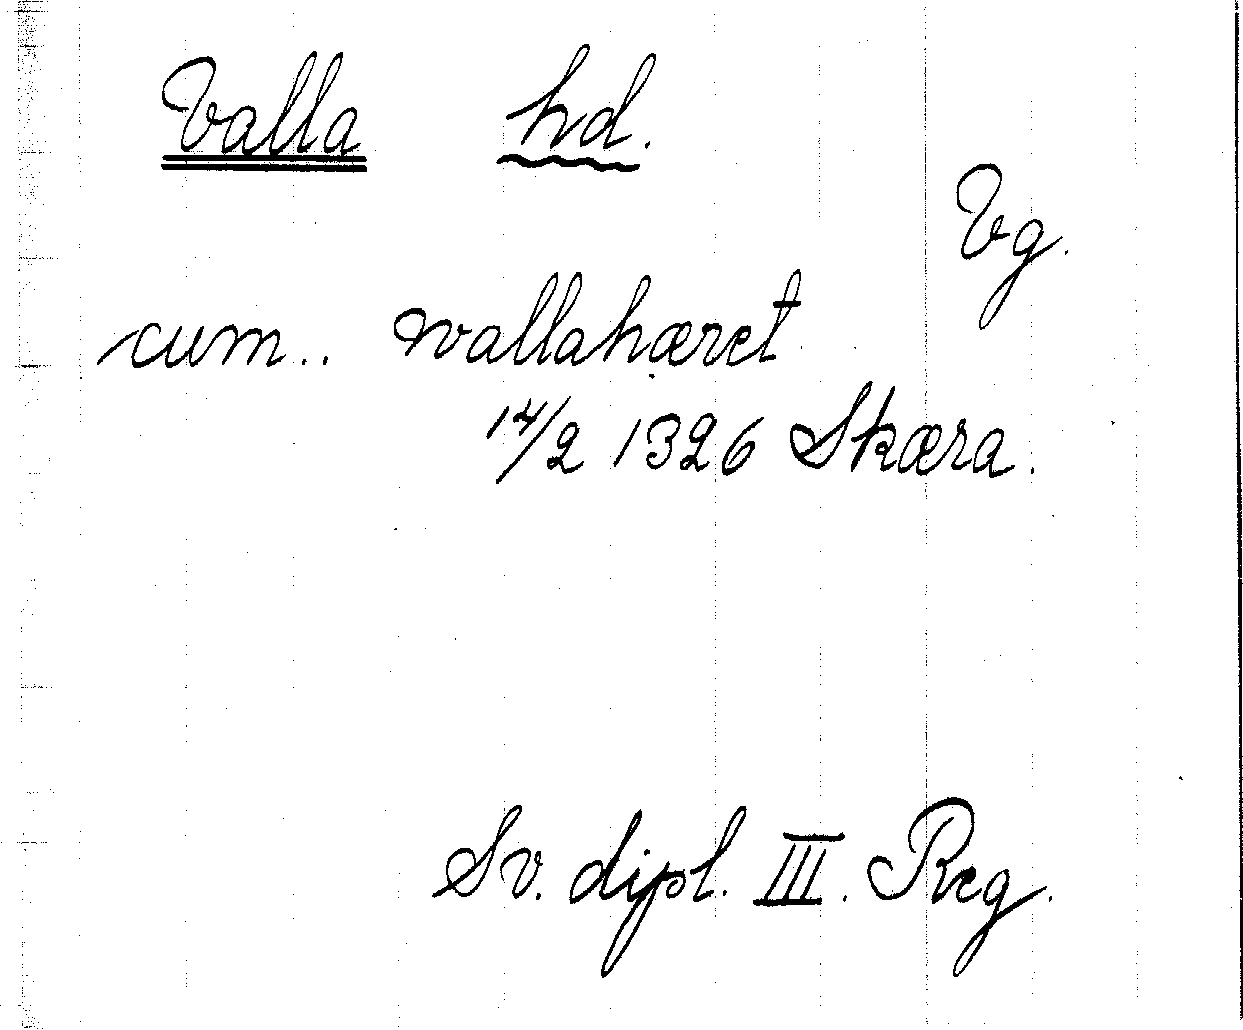 Valla hd.
Vg.
cum.. wallahæret
14/2 1326 Skæra.
Sv. dipl. III. Reg.